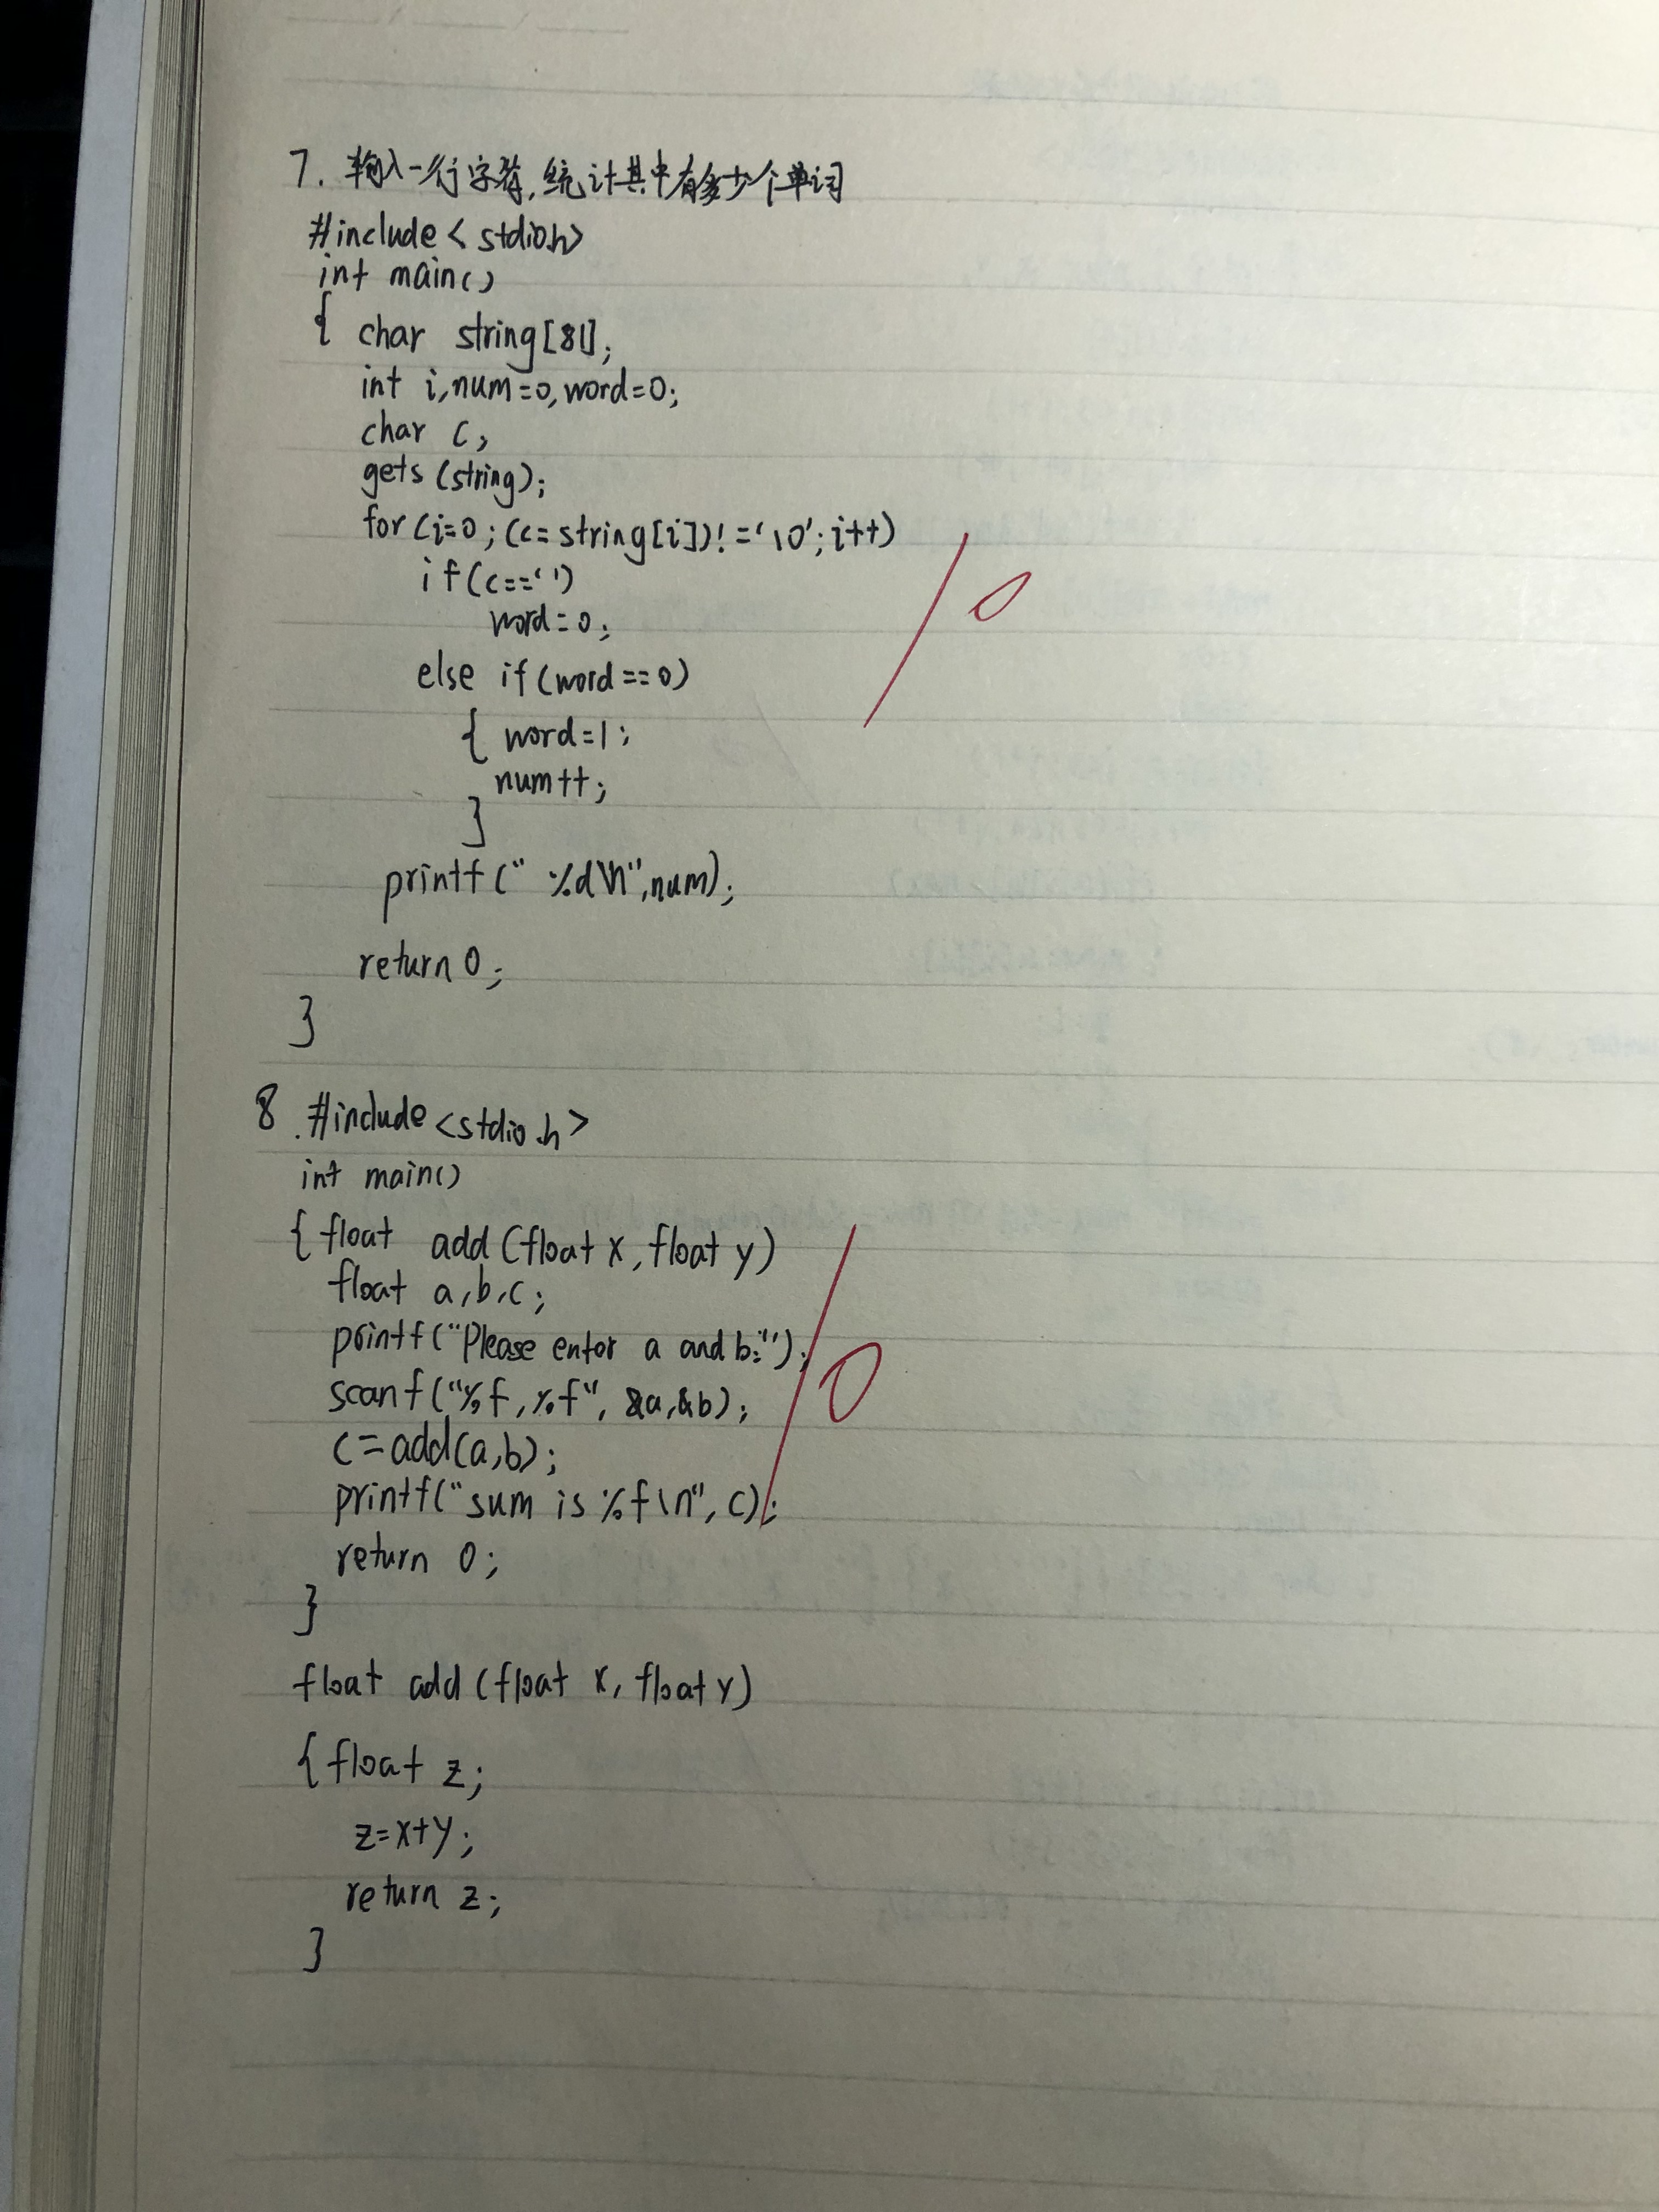 7. 输入一行字符,统计其中有多少个单词
#include<stdio.h>
int main()
{ char string[81];
int i,num=0,word=0;
char c;
gets(string);
for(i=0;(c=string[i])!='\0';i++)
if(c==' ')
word=0;
else if(word==0)
{ word=1;
num++;
}
printf(" %d\n",num);
return 0;
}
8.#include<stdio.h>
int main()
{float add(float x,float y)
float a,b,c;
printf("Please enter a and b:");
scanf("%f,%f",&a,&b);
c=add(a,b);
printf("sum is %f\n",c);
return 0;
}
float add(float x,float y)
{float z;
z=x+y;
return z;
}